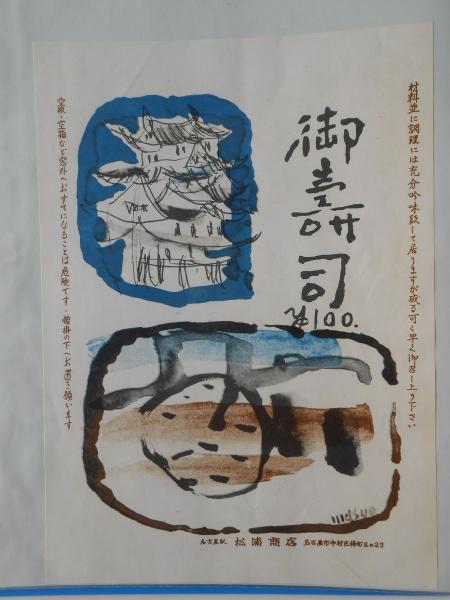 材料並に調理には充分吟味致して居りますが成る可く早く御召し上り下さい
御壽司
¥100.
空瓶・空箱など窓外へおすてになることは危険です・腰掛の下へお置き願います
名古屋駅 松浦商店 名古屋市中村区椿町2の23